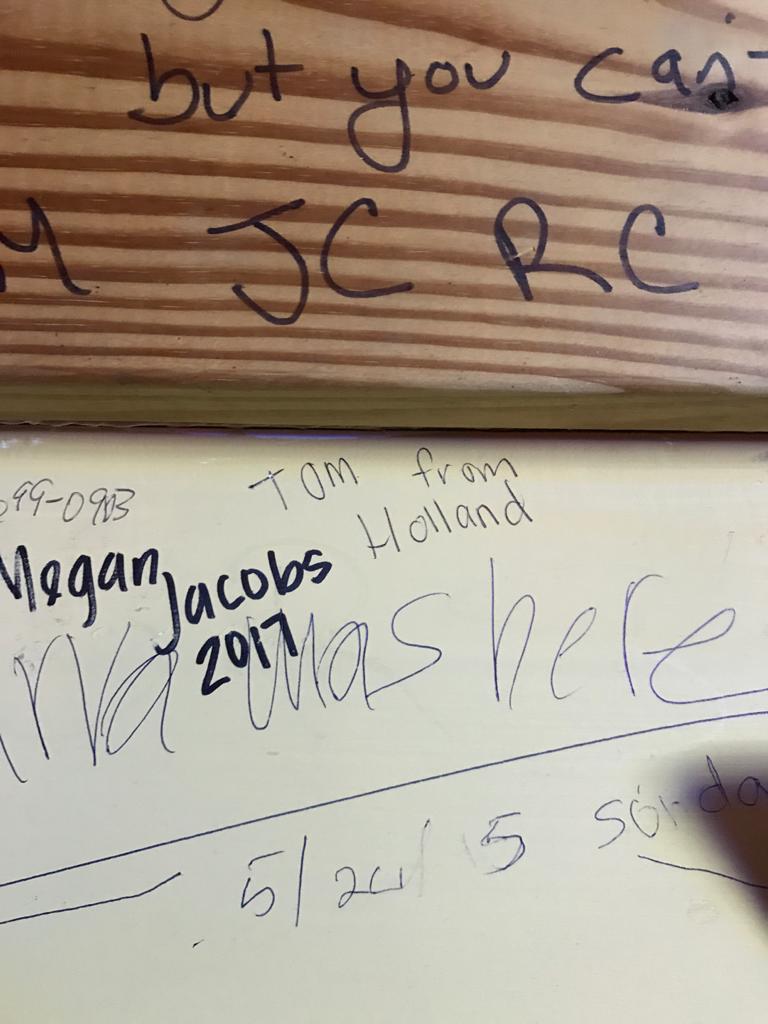 but you can't
M JC RC
099-0903
Tom from
Holland
Megan Jacobs
2017
was here
5/24/15